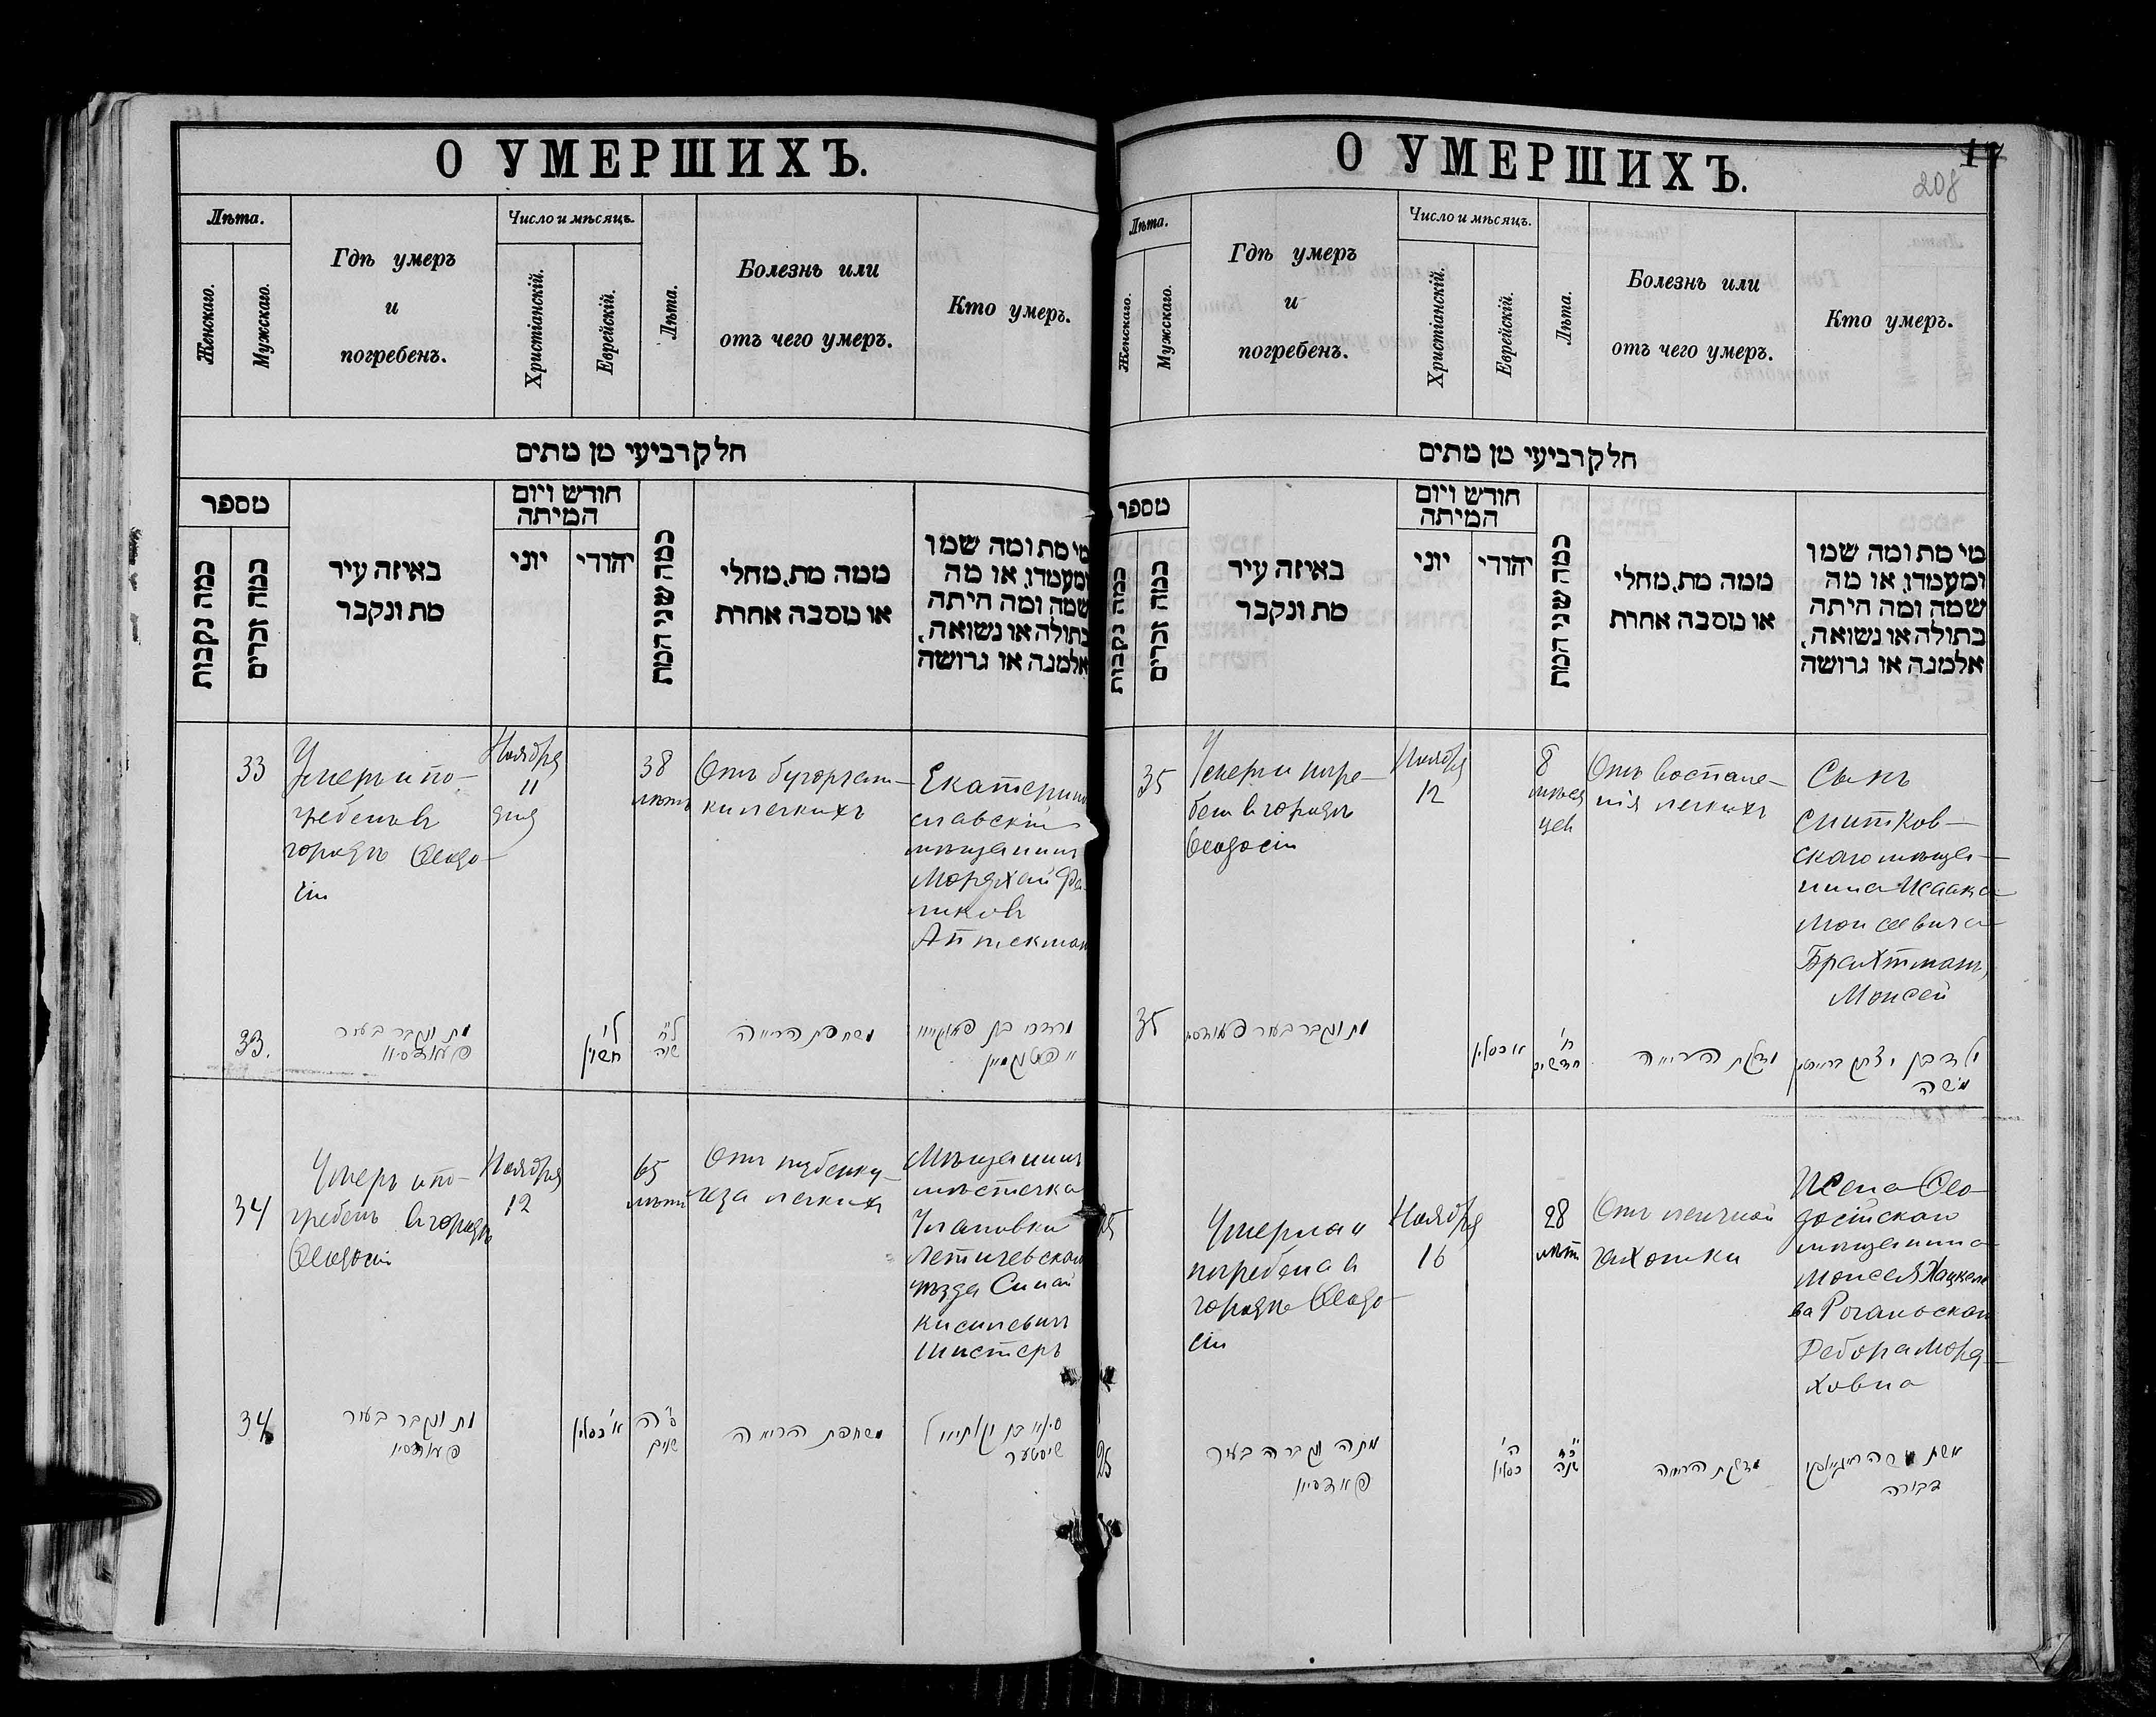 О УМЕРШИХЪ.
Лѣта.
Женскаго.
Мужскаго.
Гдѣ умеръ
и
погребенъ.
Число и мѣсяцъ.
Христіанскій.
Еврейскій.
Лѣта.
Болезнь или
отъ чего умеръ.
Кто умеръ.
חלק רביעי מן מתים
מספר
כמה נקבות
כמה זכרים
באיזה עיר
מת ונקבר
חודש ויום
המיתה
יוני
יהודי
כמה שני המת
ממה מת, מחלי
או מסבה אחרת
מי מת ומה שמו
ומעמדו, או מה
שמה ומה היתה
בתולה או נשואה,
אלמנה או גרושה
33
Умеръ и по-
гребенъ в
городѣ Ѳеодо-
сіи
Ноября
11
дня
38
лѣтъ
Отъ бугорчат-
ки легкихъ
Екатерино
славскій
мѣщанинъ
Мордхай Фа
ликовъ
Аптекман
33.
מת ונקבר בעיר
חשון
ל"ח
שנה
משחפת הריאה
34
Умеръ и по-
гребенъ в городѣ
Ѳеодосіи
Ноября
12
65
лѣтъ
Отъ туберку-
леза легкихъ
Мѣщанинъ
мѣстечка
Улановки
Летичевскаго
уѣзда Синай
Кисилевичъ
Шистеръ
34
מת ונקבר בעיר
א' כסליו
ס"ה
שנים
משחפת הריאה
שיסטער
О УМЕРШИХЪ.
17
208
Лѣта.
Женскаго.
Мужскаго.
Гдѣ умеръ
и
погребенъ.
Число и мѣсяцъ.
Христіанскій.
Еврейскій.
Лѣта.
Болезнь или
отъ чего умеръ.
Кто умеръ.
חלק רביעי מן מתים
מספר
כמה נקבות
כמה זכרים
באיזה עיר
מת ונקבר
חודש ויום
המיתה
יוני
יהודי
כמה שני המת
ממה מת, מחלי
או מסבה אחרת
מי מת ומה שמו
ומעמדו, או מה
שמה ומה היתה
בתולה או נשואה,
אלמנה או גרושה
35
Умеръ и погре-
бенъ в городѣ
Ѳеодосіи
Ноября
12
8
мѣся
цев
Отъ воспале-
нія легкихъ
Сынъ
Смитков-
скаго мѣща-
нина Исаака
Моисеевича
Брахтманъ,
Моисей
35
מת ונקבר בעיר
א כסליו
ח'
חדשים
מדלקת הריאה
ילד בן יצחק
משה
25
Умерла и
погребена в
городѣ Ѳеодо-
сіи
Ноября
16
28
лѣтъ
Отъ легочной
чахотки
Жена Ѳео-
досійскаго
мѣщанина
Моисея Хацкеле
ва Рогановскаго
Дебора Морд-
ховна
25
מתה ונקברה בעיר
ה'
כסליו
כ"ח
שנה
מדלקת הריאה
אשת משה
דבורה